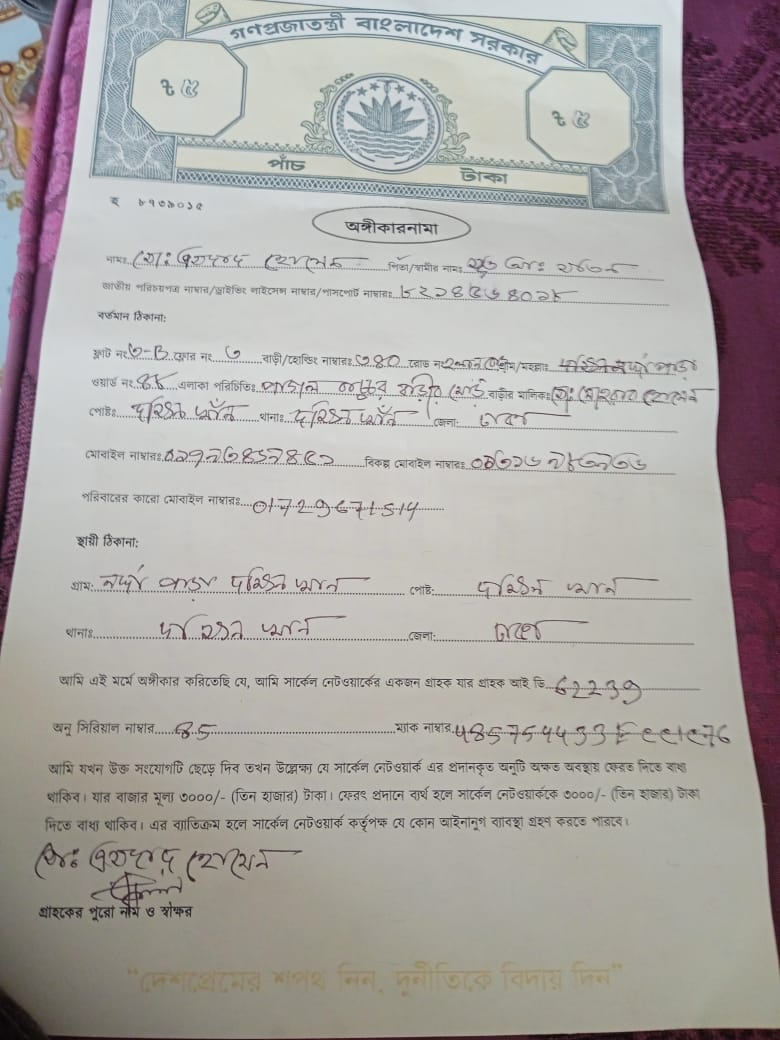 গণপ্রজাতন্ত্রী বাংলাদেশ সরকার
৳ ৫ ৳ ৫
পাঁচ টাকা
ছ ৮৭৩৯০১৫
অঙ্গীকারনামা
নামঃ মোঃ হোসেন পিতা/স্বামীর নামঃ মৃত মোঃ রতন
জাতীয় পরিচয়পত্র নাম্বার/ড্রাইভিং লাইসেন্স নাম্বার/পাসপোর্ট নাম্বারঃ
বর্তমান ঠিকানা:
ফ্লাট নং ৩-B ফ্লোর নং ৩ বাড়ী/হোল্ডিং নাম্বারঃ ৩৪০ রোড নং গ্রাম/মহল্লাঃ
ওয়ার্ড নং এলাকা পরিচিতিঃ বাড়ীর মালিকঃ মোঃ হোসেন
পোষ্টঃ দক্ষিন খাঁন থানাঃ দক্ষিন খাঁন জেলাঃ ঢাকা
মোবাইল নাম্বারঃ বিকল্প মোবাইল নাম্বারঃ
পরিবারের কারো মোবাইল নাম্বারঃ 01729671514
স্থায়ী ঠিকানা:
গ্রাম: নর্দ্দা পাড়া দক্ষিন খান পোষ্ট: দক্ষিন খান
থানাঃ দক্ষিন খান জেলা: ঢাকা
আমি এই মর্মে অঙ্গীকার করিতেছি যে, আমি সার্কেল নেটওয়ার্কের একজন গ্রাহক যার গ্রাহক আই ডি 62239
অনু সিরিয়াল নাম্বার ম্যাক নাম্বার
আমি যখন উক্ত সংযোগটি ছেড়ে দিব তখন উল্লেক্ষ্য যে সার্কেল নেটওয়ার্ক এর প্রদানকৃত অনুটি অক্ষত অবস্থায় ফেরত দিতে বাধ্য
থাকিব। যার বাজার মূল্য ৩০০০/- (তিন হাজার) টাকা। ফেরৎ প্রদানে ব্যর্থ হলে সার্কেল নেটওয়ার্ককে ৩০০০/- (তিন হাজার) টাকা
দিতে বাধ্য থাকিব। এর ব্যাতিক্রম হলে সার্কেল নেটওয়ার্ক কর্তৃপক্ষ যে কোন আইনানুগ ব্যবস্থা গ্রহণ করতে পারবে।
মোঃ হোসেন
গ্রাহকের পুরো নাম ও স্বাক্ষর
"দেশপ্রেমের শপথ নিন, দুর্নীতিকে বিদায় দিন"